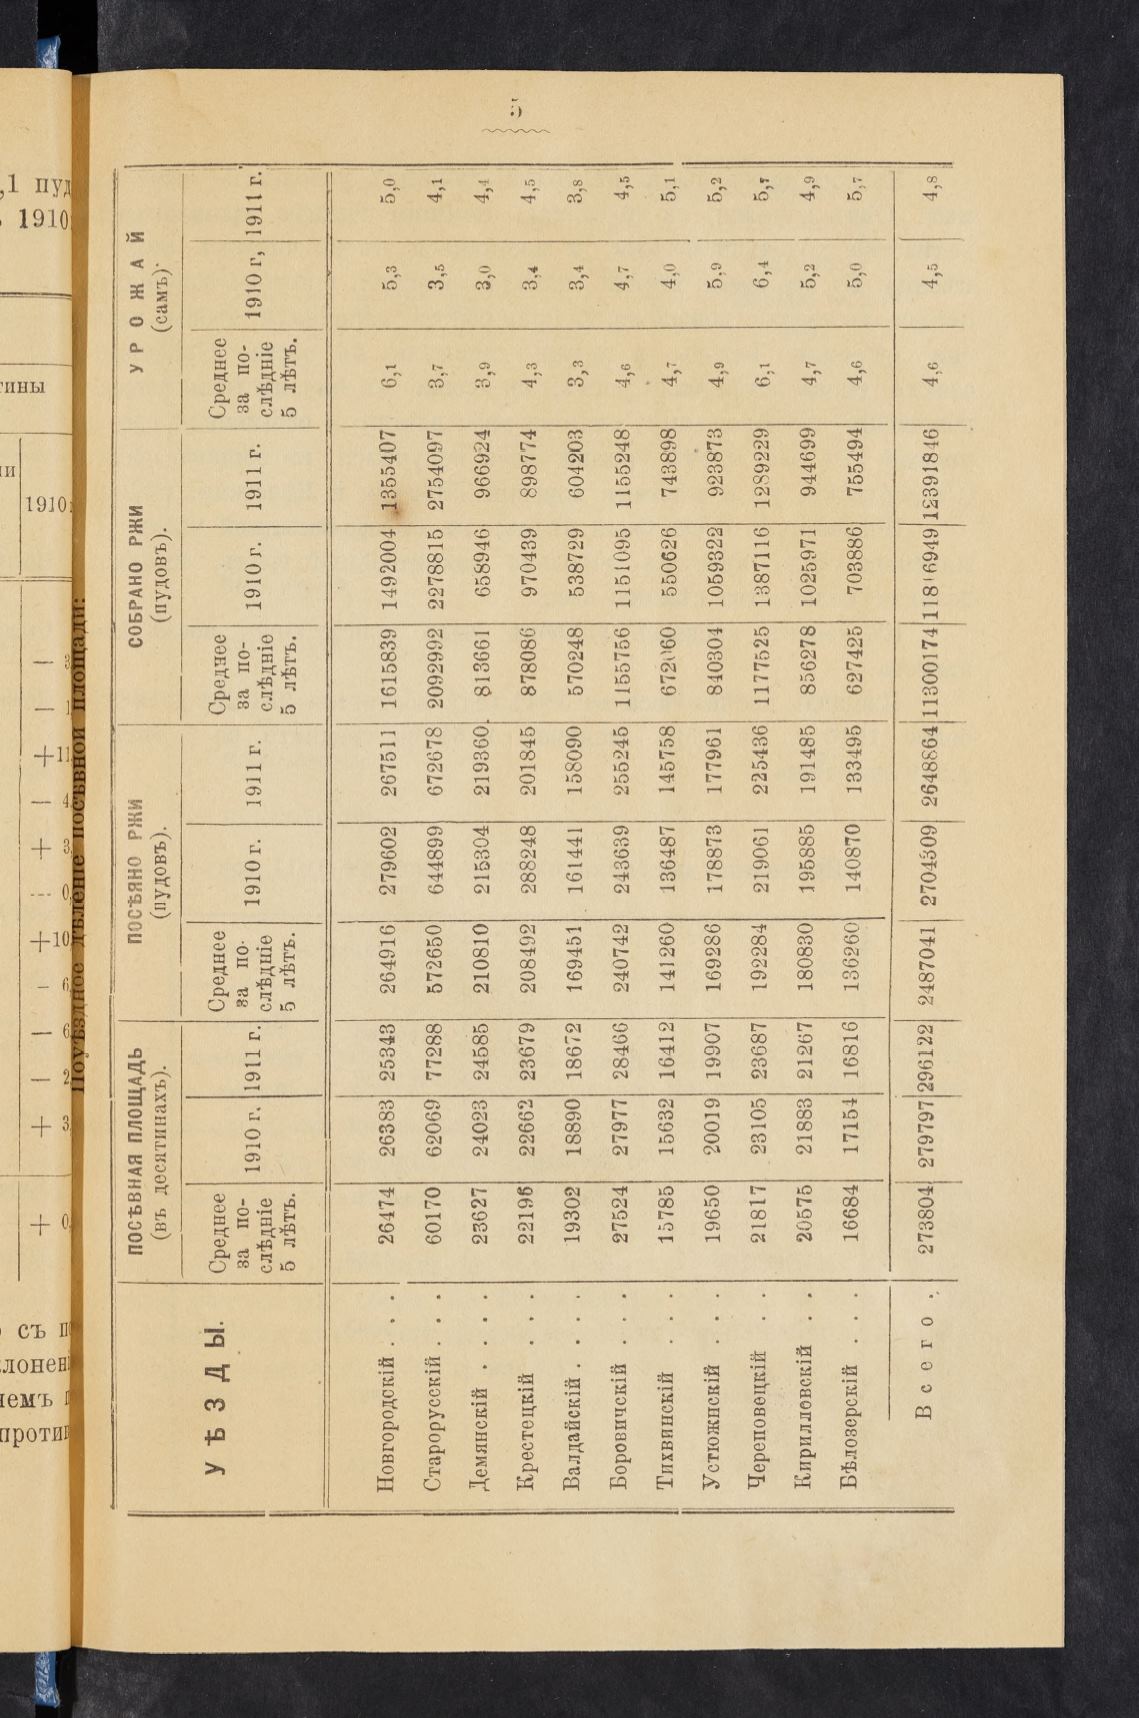 5
Поуѣздное дѣленіе посѣвной площади:
УѢЗДЫ.
ПОСѢВНАЯ ПЛОЩАДЬ (въ десятинахъ).
ПОСѢЯНО РЖИ (пудовъ).
СОБРАНО РЖИ (пудовъ).
УРОЖАЙ (самъ).
Среднее за послѣдніе 5 лѣтъ. 1910 г. 1911 г. Среднее за послѣдніе 5 лѣтъ. 1910 г. 1911 г. Среднее за послѣдніе 5 лѣтъ. 1910 г. 1911 г. Среднее за послѣдніе 5 лѣтъ. 1910 г, 1911 г.
Новгородскій . . . 26474 26383 25343 264916 279602 267511 1615839 1492004 1355407 6,1 5,3 5,0
Старорусскій . . . 60170 62069 77288 572650 644899 672678 2092992 2278815 2754097 3,7 3,5 4,1
Демянскій . . . . 23627 24023 24585 210810 215304 219360 813661 658946 966924 3,9 3,0 4,4
Крестецкій . . . 22196 22662 23679 208492 288248 201845 878086 970439 898774 4,3 3,4 4,5
Валдайскій . . . . 19302 18890 18672 169451 161441 158090 570248 538729 604203 3,3 3,4 3,8
Боровичскій . . . 27524 27977 28466 240742 243639 255245 1155756 1151095 1155248 4,6 4,7 4,5
Тихвинскій . . . 15785 15632 16412 141260 136487 145758 672060 550626 743898 4,7 4,0 5,1
Устюжнскій . . . 19650 20019 19907 169286 178873 177961 840304 1059322 923873 4,9 5,9 5,2
Череповецкій . . 21817 23105 23687 192284 219061 225436 1177525 1387116 1289229 6,1 6,4 5,7
Кирилловскій . . 20575 21883 21267 180830 195885 191485 856278 1025971 944699 4,7 5,2 4,9
Бѣлозерскій . . . 16684 17154 16816 136260 140870 133495 627425 703886 755494 4,6 5,0 5,7
Всего . . 273804 279797 296122 2487041 2704309 2648864 11300174 6949 12391846 4,6 4,5 4,8